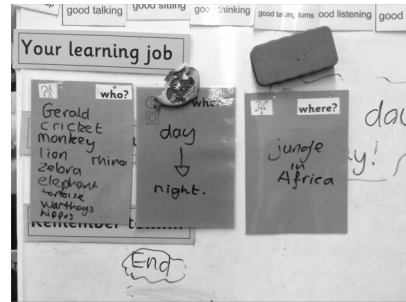 good talking
good sitting
good thinking
good taking turns
ood listening
good
Your learning job
who?
Gerald
cricket
monkey
lion
rhino
zebra
elephant
tortoise
warthogs
hippos
day
night.
where?
jungle
in
Africa
day
y!
Remember
End